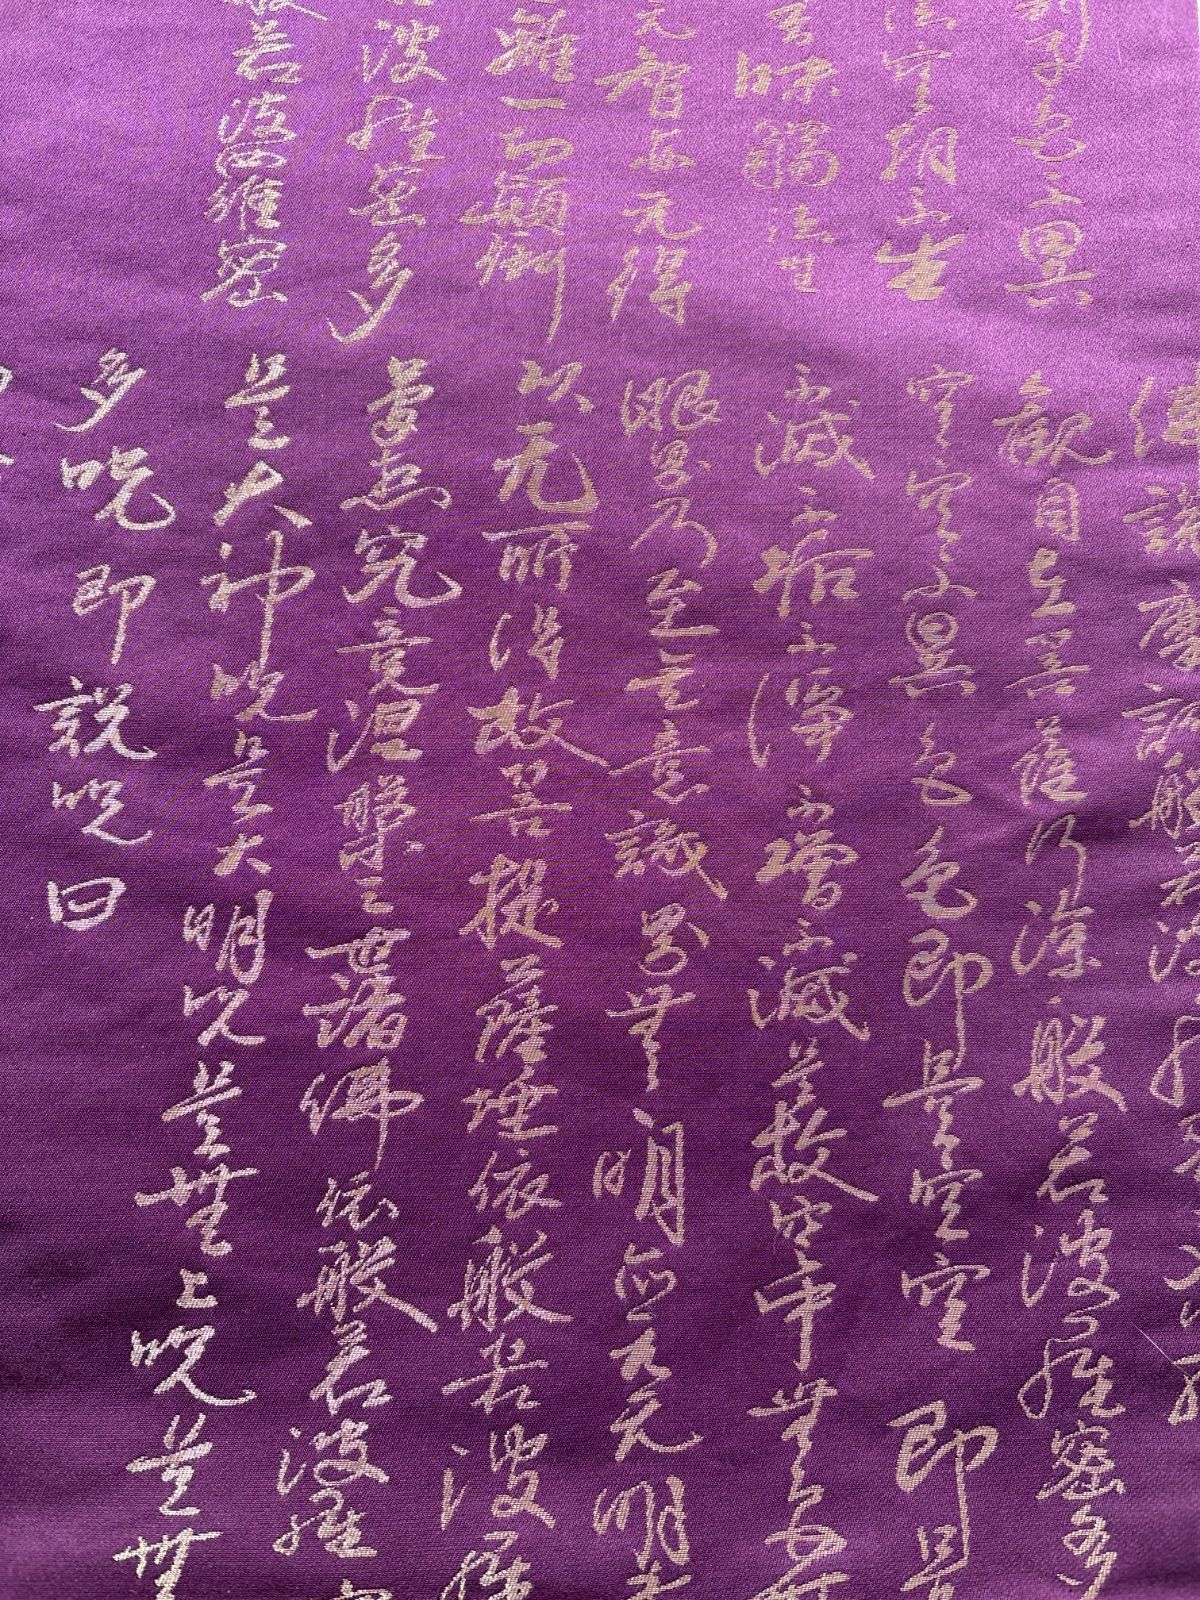 利子色不異
法空相不生
味觸法無
无智亦无得
離一切顛倒
波羅密多
般若波羅密
佛說摩訶般若波羅
觀自在菩薩行深般若波羅密多
空空不異色色即是空空即是
不滅不垢不淨不增不減是故空中無色無
眼界乃至無意識界無明亦无无明盡
以无所得故菩提薩埵依般若波羅
夢想究竟涅槃三世諸佛依般若波羅密
是大神咒是大明咒是無上咒是無
多咒即說咒曰